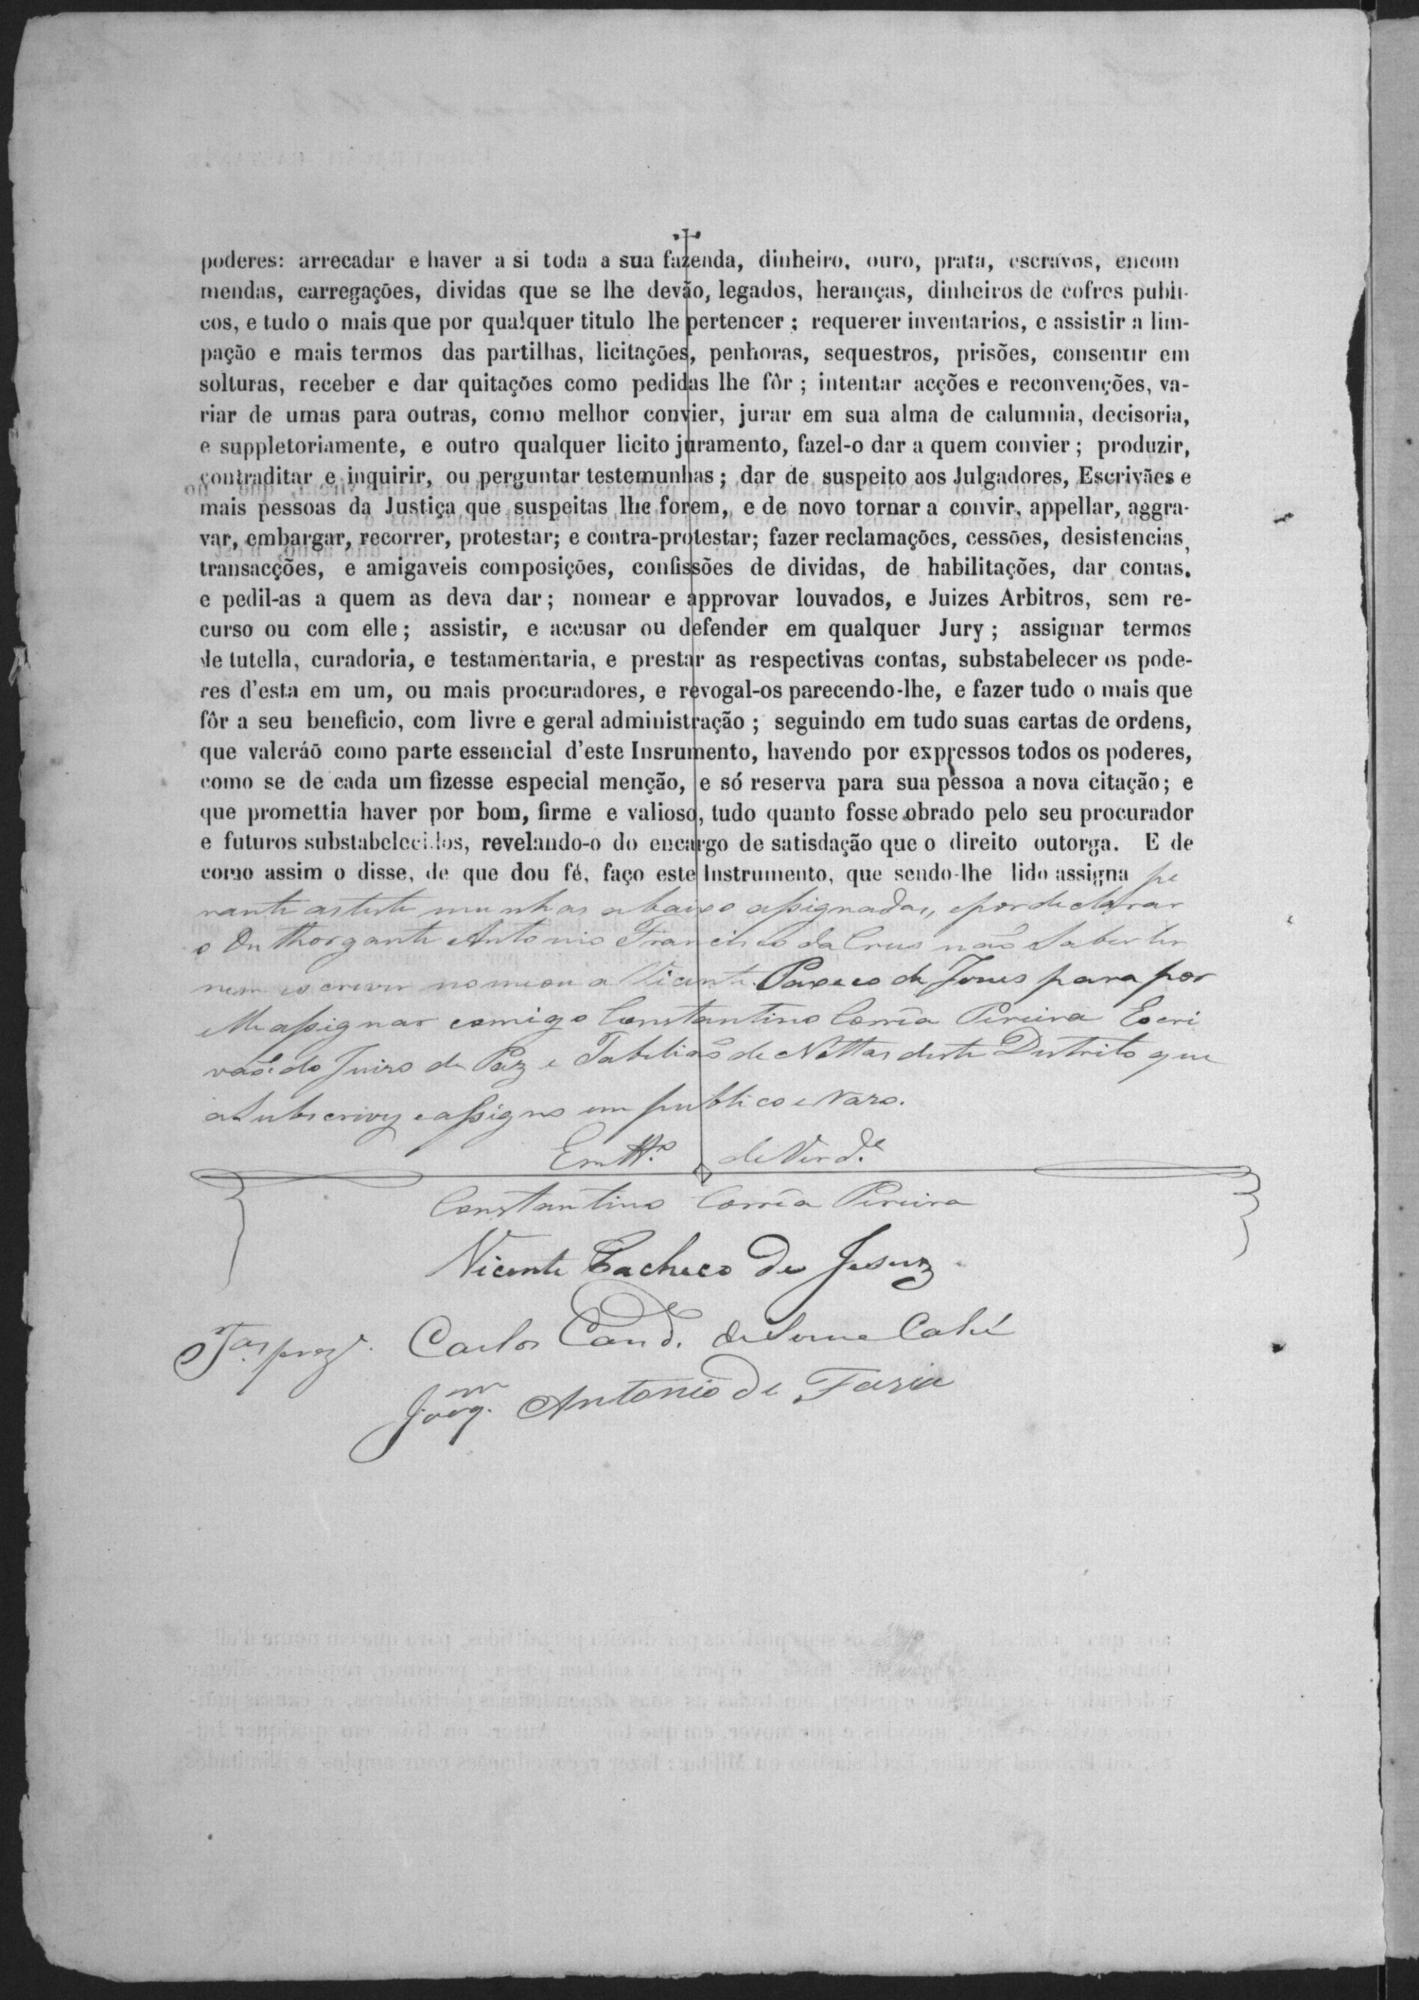 poderes: arrecadar e haver a si toda a sua fazenda, dinheiro, ouro, prata, escravos, encom
mendas, carregações, dividas que se lhe devão, legados, heranças, dinheiros de cofres publi-
cos, e tudo o mais que por qualquer titulo lhe pertencer ; requerer inventarios, e assistir a lim-
pação e mais termos das partilhas, licitações, penhoras, sequestros, prisões, consentir em
solturas, receber e dar quitações como pedidas lhe fôr ; intentar acções e reconvenções, va-
riar de umas para outras, como melhor convier, jurar em sua alma de calumnia, decisoria,
e suppletoriamente, e outro qualquer licito juramento, fazel-o dar a quem convier ; produzir,
contraditar e inquirir, ou perguntar testemunhas ; dar de suspeito aos Julgadores, Escrivães e
mais pessoas da Justiça que suspeitas lhe forem, e de novo tornar a convir, appellar, aggra-
var, embargar, recorrer, protestar; e contra-protestar; fazer reclamações, cessões, desistencias,
transacções, e amigaveis composições, confissões de dividas, de habilitações, dar contas,
e pedil-as a quem as deva dar ; nomear e approvar louvados, e Juizes Arbitros, sem re-
curso ou com elle ; assistir, e accusar ou defender em qualquer Jury ; assignar termos
de tutella, curadoria, e testamentaria, e prestar as respectivas contas, substabelecer os pode-
res d'esta em um, ou mais procuradores, e revogal-os parecendo-lhe, e fazer tudo o mais que
fôr a seu beneficio, com livre e geral administração ; seguindo em tudo suas cartas de ordens,
que valeráõ como parte essencial d'este Insrumento, havendo por expressos todos os poderes,
como se de cada um fizesse especial menção, e só reserva para sua pessoa a nova citação; e
que promettia haver por bom, firme e valioso, tudo quanto fosse obrado pelo seu procurador
e futuros substabelecidos, revelando-o do encargo de satisdação que o direito outorga. E de
como assim o disse, de que dou fé, faço este Instrumento, que sendo-lhe lido assigna pe
rante as teste munhas abaixo assignadas, e por declarar
o Outhorgante Antonio Francisco da Crus não saber ler
nem escrever nomeou a Vicente Paxeco de Jesus para por
elle assignar comigo Constantino Corrêa Pereira Escri
vão do Juizo de Paz e Tabelião de Nottas deste Districto que
a subscrevy e assigno em publico e razo.
Em tt.º de Verd.e
Constantino Corrêa Pereira
Vicente Pacheco de Jesuz
Tas prez. Carlos Cand. de
Joaq.m Antonio de Faria